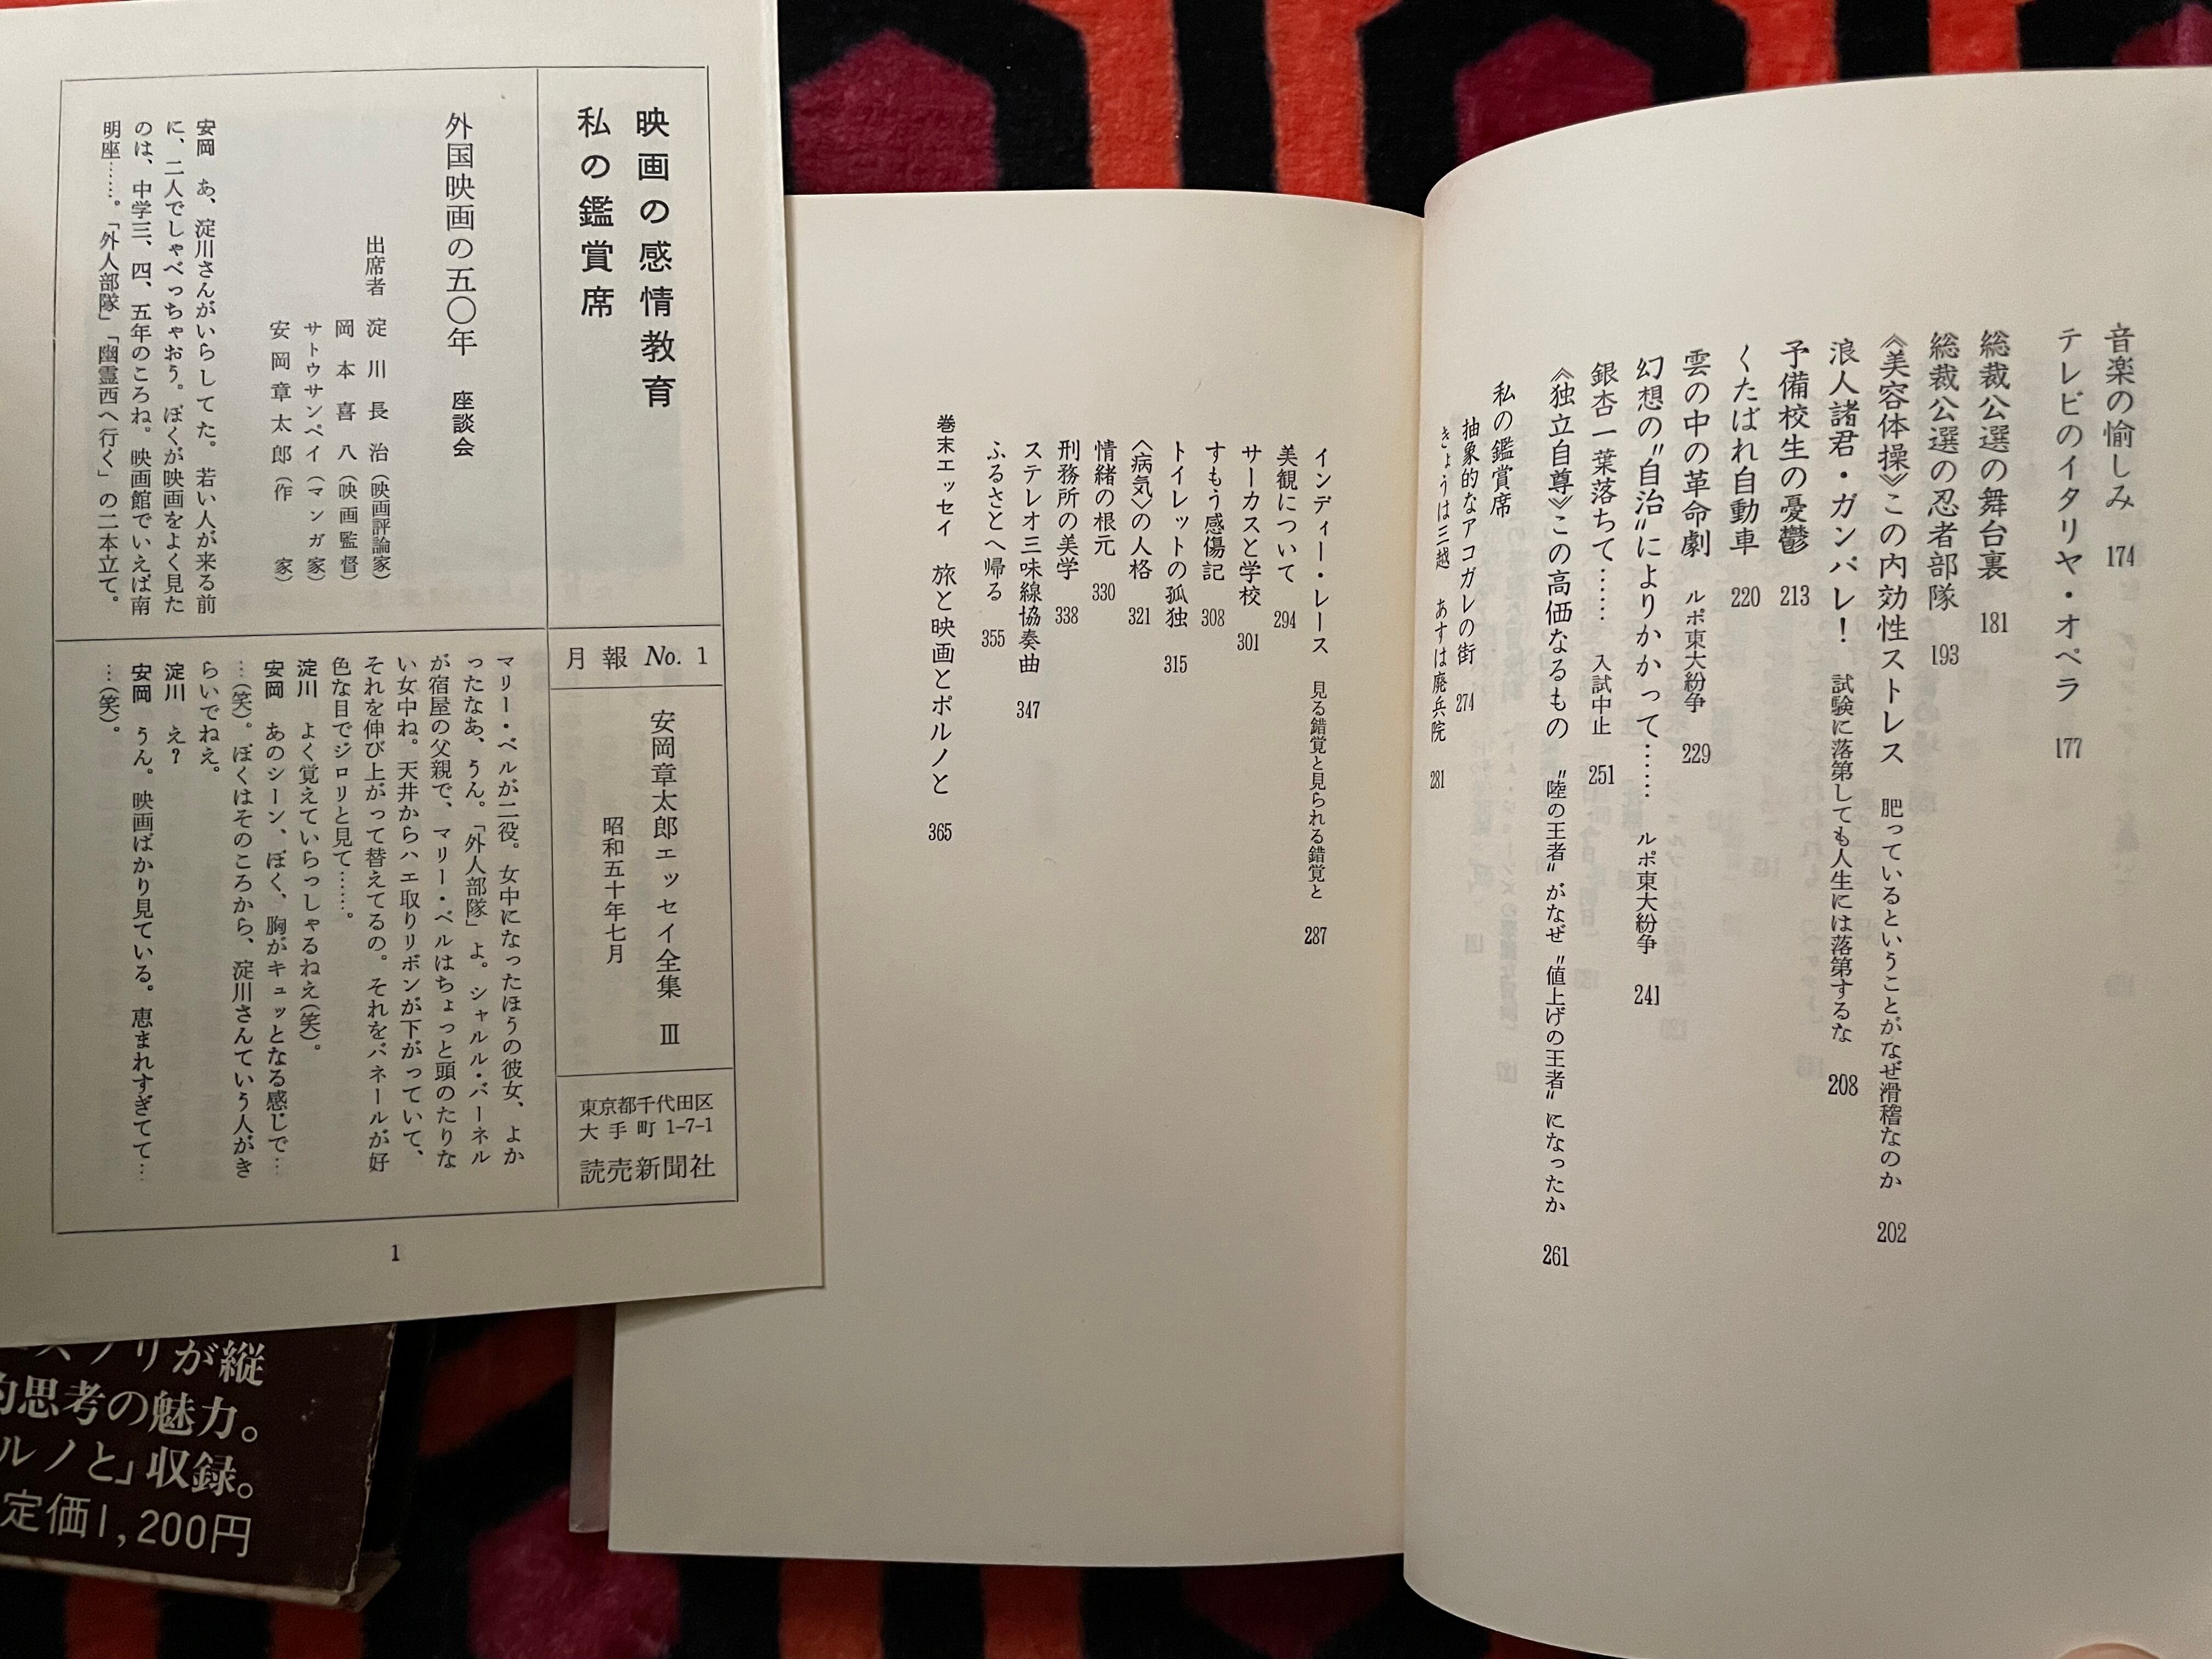 音楽の愉しみ 174
テレビのイタリヤ・オペラ 177
総裁公選の舞台裏 181
総裁公選の忍者部隊 193
《美容体操》この内効性ストレス 肥っているということがなぜ滑稽なのか 202
浪人諸君・ガンバレ! 試験に落第しても人生には落第するな 208
予備校生の憂鬱 213
くたばれ自動車 220
雲の中の革命劇 ルポ東大紛争 229
幻想の〝自治〟によりかかって…… ルポ東大紛争 241
銀杏一葉落ちて…… 入試中止 251
《独立自尊》この高価なるもの 〝陸の王者〟がなぜ〝値上げの王者〟になったか 261
私の鑑賞席
抽象的なアコガレの街 274
きょうは三越 あすは廃兵院 281
インディー・レース 見る錯覚と見られる錯覚と 287
美観について 294
サーカスと学校 301
すもう感傷記 308
トイレットの孤独 315
〈病気〉の人格 321
情緒の根元 330
刑務所の美学 338
ステレオ三味線協奏曲 347
ふるさとへ帰る 355
巻末エッセイ 旅と映画とポルノと 365
映画の感情教育
私の鑑賞席
月報 No. 1
安岡章太郎エッセイ全集 Ⅲ
昭和五十年七月
東京都千代田区
大手町 1-7-1
読売新聞社
外国映画の五〇年 座談会
出席者 淀川長治(映画評論家)
岡本喜八(映画監督)
サトウサンペイ(マンガ家)
安岡章太郎(作家)
安岡 あ、淀川さんがいらしてた。若い人が来る前
に、二人でしゃべっちゃおう。ぼくが映画をよく見た
のは、中学三、四、五年のころね。映画館でいえば南
明座……。「外人部隊」「幽霊西へ行く」の二本立て。
マリー・ベルが二役。女中になったほうの彼女、よか
ったなあ、うん。「外人部隊」よ。シャルル・バーネル
が宿屋の父親で、マリー・ベルはちょっと頭のたりな
い女中ね。天井からハエ取りリボンが下がっていて、
それを伸び上がって替えてるの。それをバネールが好
色な目でジロリと見て……。
淀川 よく覚えていらっしゃるねえ(笑)。
安岡 あのシーン、ぼく、胸がキュッとなる感じで…
…(笑)。ぼくはそのころから、淀川さんていう人がき
らいでねえ。
淀川 え?
安岡 うん。映画ばかり見ている。恵まれすぎてて…
…(笑)。
1
リが縦
的思考の魅力。
ルノと」収録。
定価1,200円